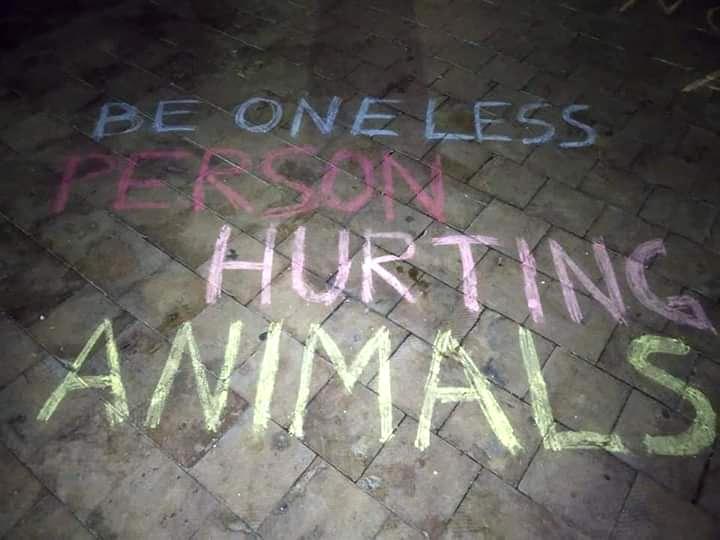 BE ONE LESS
PERSON
HURTING
ANIMALS